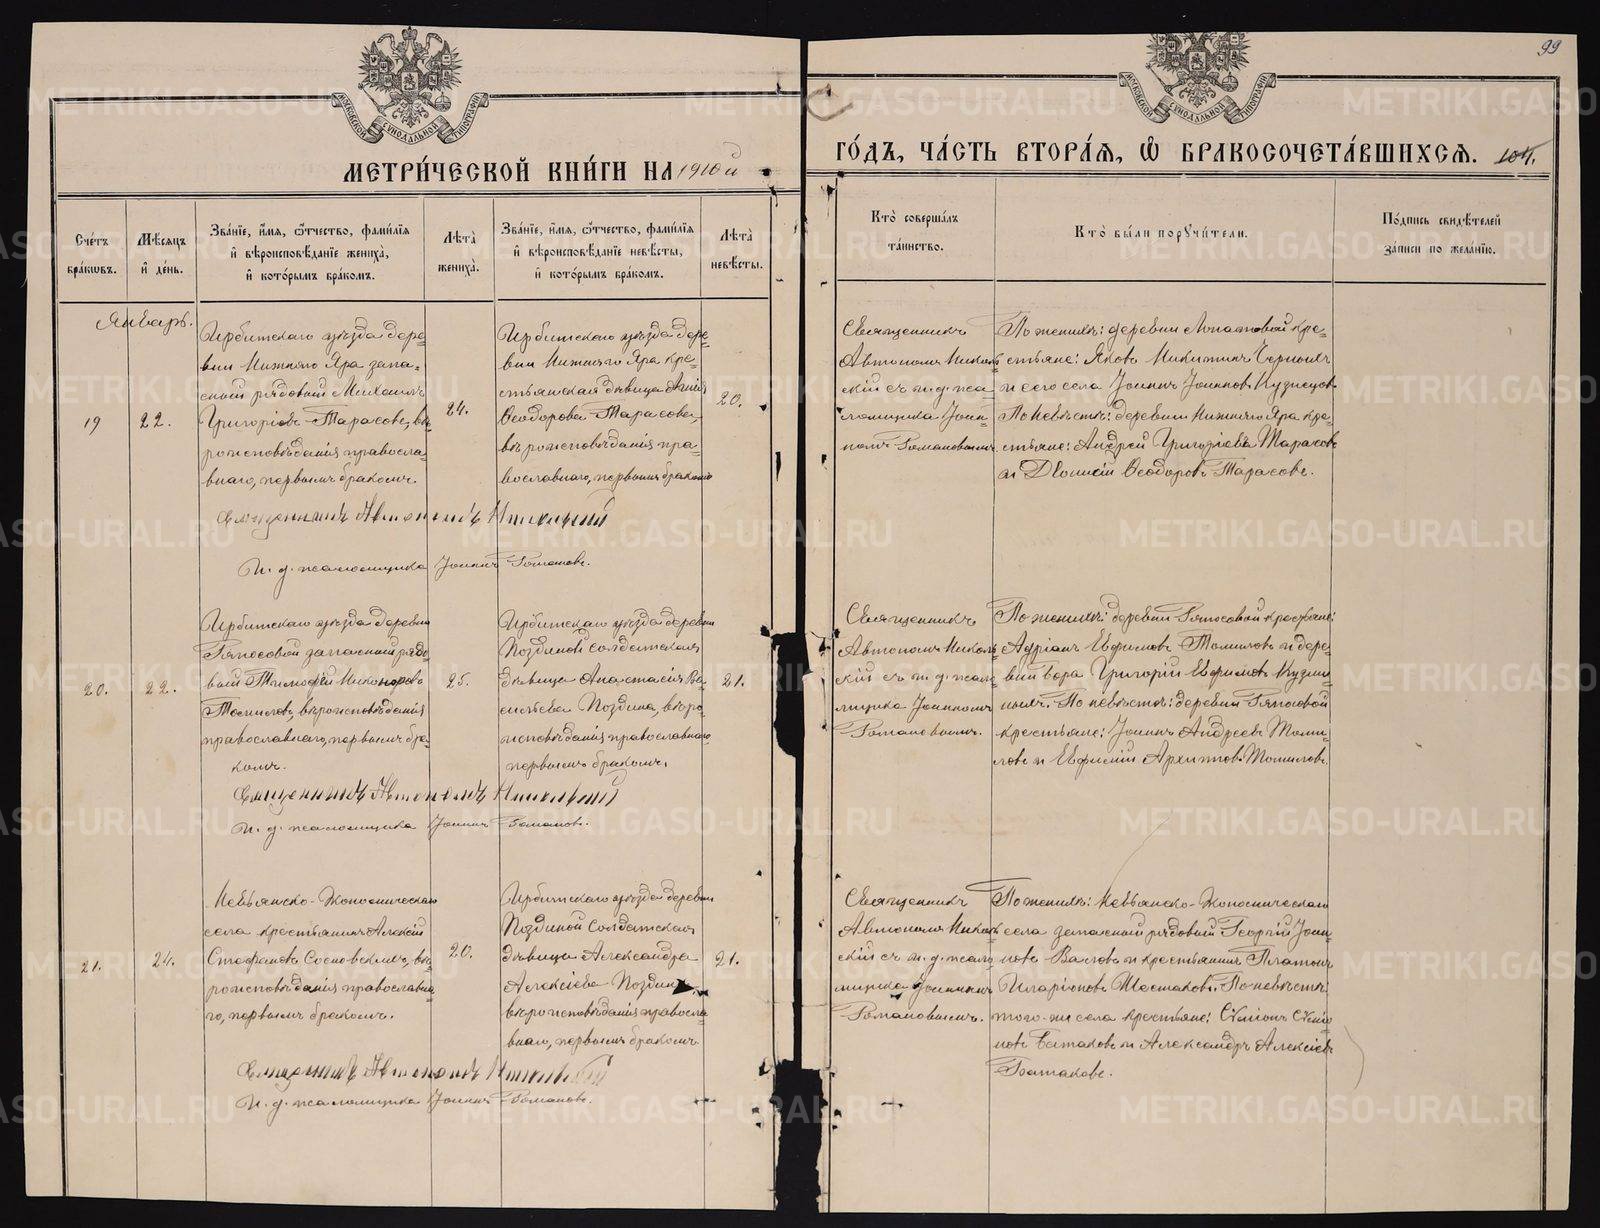 99
МОСКОВСКОЙ СУНОДАЛЬНОЙ ТИПОГРАФІИ
МОСКОВСКОЙ СУНОДАЛЬНОЙ ТИПОГРАФІИ
МЕТРИ́ЧЕСКОЙ КНИ́ГИ НА 1910й
ГО́ДЪ, ЧА́СТЬ ВТОРА́Я, Ѡ БРАКОСОЧЕТА́ВШИХСЯ. 104.
Сче́тъ бра́кωвъ.
Мѣ́сяцъ и҆ де́нь.
Зва́нїе, и҆́мя, ѻ҆́тчество, фами́лїя и҆ вѣроисповѣ́данїе жениха̀, и҆ кото́рымъ бра́комъ.
Лѣта̀ жениха̀.
Зва́нїе, и҆́мя, ѻ҆́тчество, фами́лїя и҆ вѣроисповѣ́данїе невѣ́сты, и҆ кото́рымъ бра́комъ.
Лѣта̀ невѣ́сты.
Кто̀ соверша́лъ та́инство.
Кто̀ бы́ли порꙋчи́тели.
По́дпись свидѣ́телей за́писи по жела́нїю.
Январь.
19
22.
Ирбитскаго уѣзда дере=
вни Нижняго Яра запа=
сный рядовый Михаилъ
Григоріевъ Тарасовъ, вѣ=
роисповѣданія правосла=
внаго, первымъ бракомъ.
24.
Ирбитскаго уѣзда дере=
вни Нижняго Яра кре=
стьянская дѣвица
Ѳеодорова Тарасова,
вѣроисповѣданія пра=
вославнаго, первымъ бракомъ
20.
Священникъ
Автономъ Николь=
скій съ и. д. пса=
ломщика Іоан=
номъ Романовымъ
По женихѣ: деревни Лопатовой кре=
стьяне: Яковъ Никитинъ
и сего села Іоаннъ Іоанновъ Кузнецовъ
По невѣстѣ: деревни Нижняго Яра кре=
стьяне: Андрей Григорьевъ Тарасовъ
и Діонисій Ѳеодоровъ Тарасовъ.
Священникъ Автономъ Никольскій
И. д. псаломщика Іоаннъ Романовъ.
20.
22.
Ирбитскаго уѣзда деревни
запасный рядо=
вый Тимофей Никоноровъ
Томиловъ, вѣроисповѣданія
православнаго, первымъ бра=
комъ.
25.
Ирбитскаго уѣзда деревни
Поздиной солдатская
дѣвица Анастасія Ва=
сильева Поздина, вѣро=
исповѣданія православнаго,
первымъ бракомъ.
21.
Священникъ
Автономъ Николь=
скій съ и. д. псало=
мщика Іоанномъ
Романовымъ.
По женихѣ: деревни крестьяне:
Адріанъ Ефимовъ Томиловъ и дере=
вни Бора Григорій Ефимовъ Кузми=
ныхъ. По невѣстѣ: деревни
крестьяне: Іоаннъ Андреевъ Томи=
ловъ и Ефимій Архиповъ Томиловъ.
Священникъ Автономъ Никольскій
И. д. псаломщика Іоаннъ Романовъ.
21.
24.
Невьянско-Экономическаго
села крестьянинъ Алексій
Стефановъ Сосновскихъ, вѣ=
роисповѣданія православна=
го, первымъ бракомъ.
20.
Ирбитскаго уѣзда деревни
Поздиной солдатская
дѣвица Александра
Алексіева Поздина,
вѣроисповѣданія правосла=
внаго, первымъ бракомъ
21.
Священникъ
Автономъ Николь=
скій съ и. д. псало=
мщика Іоанномъ
Романовымъ.
По женихѣ: Невьянско-Экономическаго
села запасный рядовый Георгій Іоан=
новъ и крестьянинъ Платонъ
Иларіоновъ Шестаковъ. По невѣстѣ
того-же села крестьяне: Сѵмеонъ Сѵмео=
новъ Батаковъ и Александръ Алексіевъ
Батаковъ.
Священникъ Автономъ Никольскій
И. д. псаломщика Іоаннъ Романовъ.
METRIKI.GASO-URAL.RU